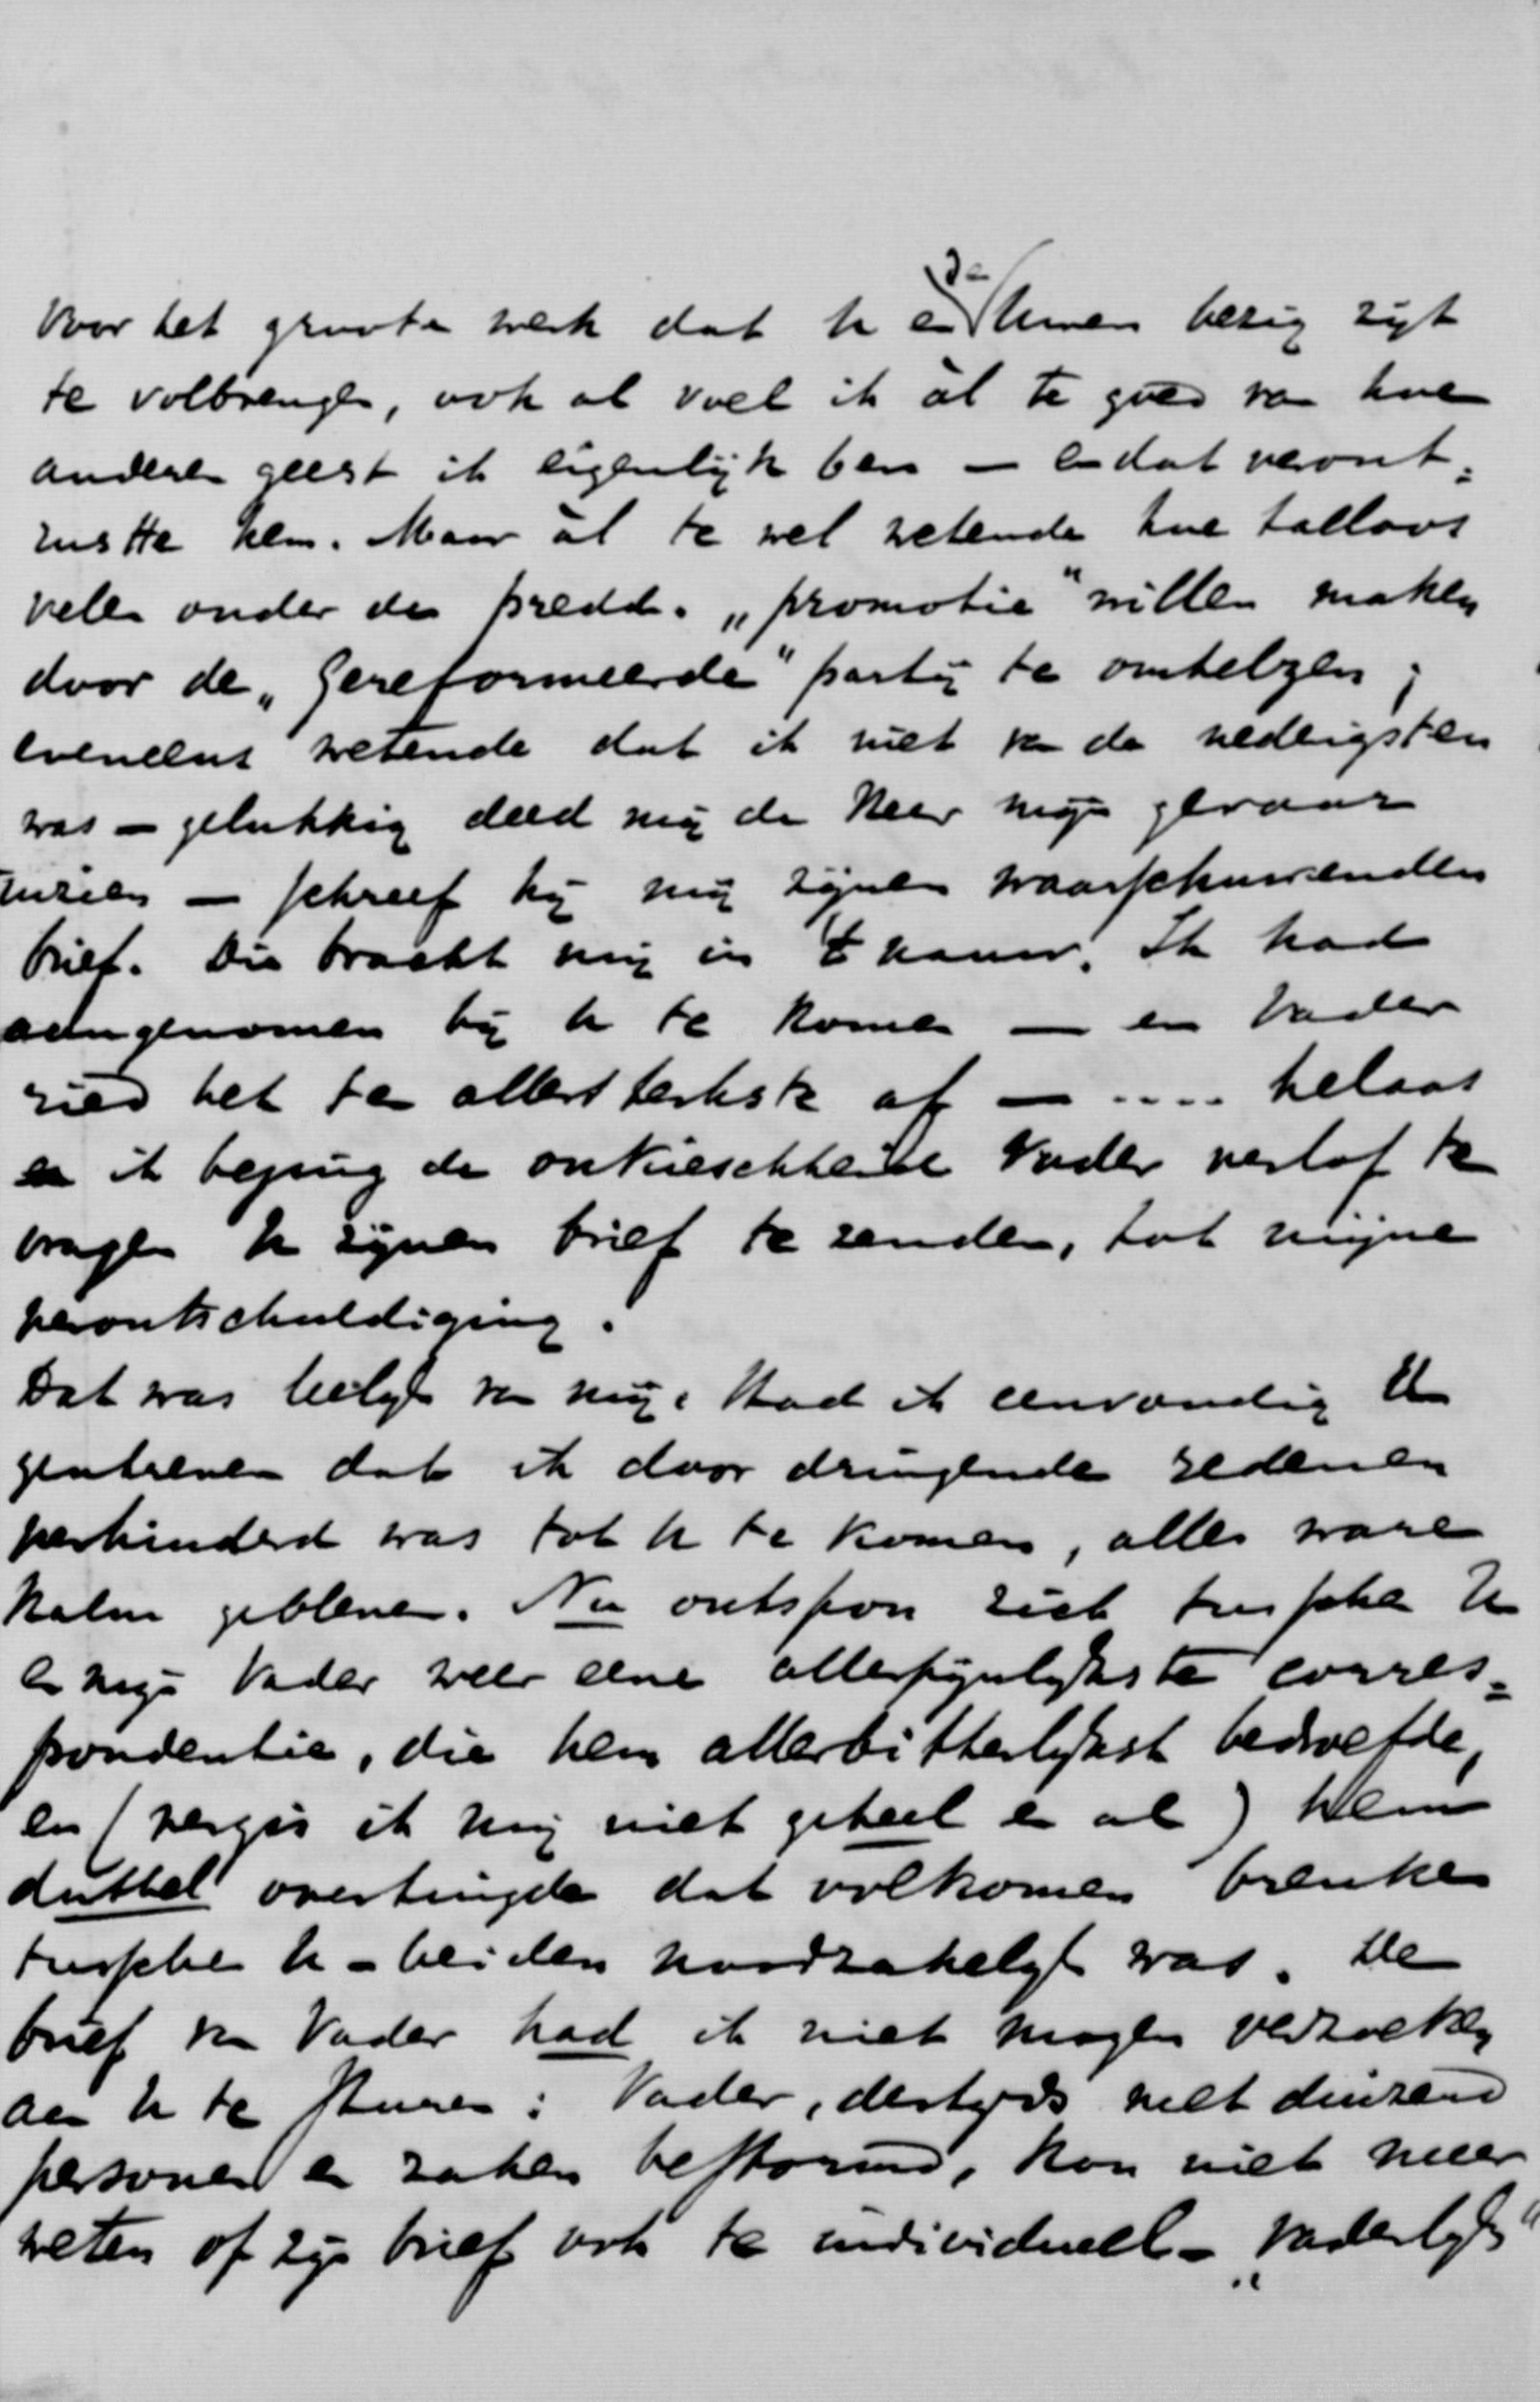 voor het groote werk dat U en de Uwen bezig zijt
te volbrengen, ook al voel ik àl te goed van hoe
anderen geest ik eigenlijk ben — en dat veront-
rustte hem. Maar àl te wel wetende hoe talloos
velen onder de predd. „promotie" willen maken
door de „Gereformeerde" partij te omhelzen;
eveneens wetende dat ik niet van de nederigsten
was — gelukkig deed mij de Heer mijn gevaar
inzien — schreef hij mij zijnen waarschuwenden
brief. Die bracht mij in 't nauw. Ik had
aangenomen bij U te komen — en Vader
ried het ten allersterkste af — .... helaas
en ik beging de onkieschheid Vader verlof te
vragen U zijnen brief te zenden, tot mijne
verontschuldiging.
Dat was leelijk van mij. Had ik eenvoudig U
geschreven dat ik door dringende redenen
verhinderd was tot U te komen, alles ware
kalm gebleven. Nu ontspon zich tusschen U
en mijn Vader weer eene allerpijnlijkste corres-
pondentie, die hem allerbitterlijkst bedroefde,
en (vergis ik mij niet geheel en al) hem
dubbel overtuigde dat volkomen breuke
tusschen U-beiden noodzakelijk was. De
brief van Vader had ik niet mogen verzoeken
aan U te sturen: Vader, destijds met duizend
personen en zaken bestormd, kon niet meer
weten of zijn brief ook te individueel- „vaderlijk"